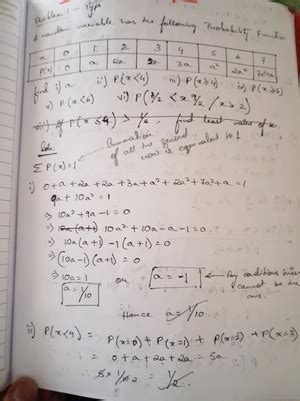 Problem 1 - Type
A random variable has the following Probability Function
x 0 1 2 3 4 5 6 7
P(x) 0 a 2a 2a 3a a² 2a² 7a²+a
find i) a ii) P(x<4) iii) P(x≥4) iv) P(x≥6)
v) P(x<6) vi) P(3/2 < x 9/2 / x > 2)
vii) If P(x≤4) > 1/2, find least value of x
Soln
Σ P(x) = 1
Summation of all the second row is equivalent to 1
i) 0+a+2a+2a+3a+a²+2a²+7a²+a = 1
9a + 10a² = 1
⇒ 10a² + 9a - 1 = 0
⇒ 10a(a+1) 10a² + 10a - a - 1 = 0
⇒ 10a(a+1) - 1(a+1) = 0
⇒ (10a-1)(a+1) = 0
⇒ 10a = 1 or a = -1
a = 1/10
cannot be the ans.
Hence a = 1/10
ii) P(x<4) = P(x=0) + P(x=1) + P(x=2) + P(x=3)
= 0 + a + 2a + 2a = 5a
= 5 × 1/10 2 = 1/2